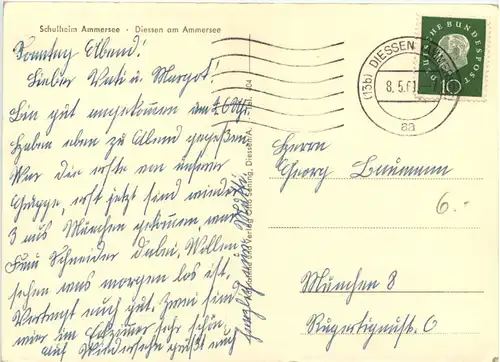 Schulheim Ammersee · Diessen am Ammersee
Sonntag Abend!
Lieber Vati u. Margot!
Bin gut angekommen um 16 Uhr,
haben eben zu Abend gegessen
War die erste von unserer
Gruppe, erst jetzt sind wieder
3 aus München gekommen, war
Frau Schneider dabei. Wollen
sehen was morgen los ist.
Vertragt euch gut. Zwei sind
wir im sehr schön
auf Wiedersehn grüßt euch
herzlich
Diessen/A.
(13b) DIESSEN
8.5.61
aa
DEUTSCHE BUNDESPOST
10
Herrn
Georg Baumann
6.-
München 8